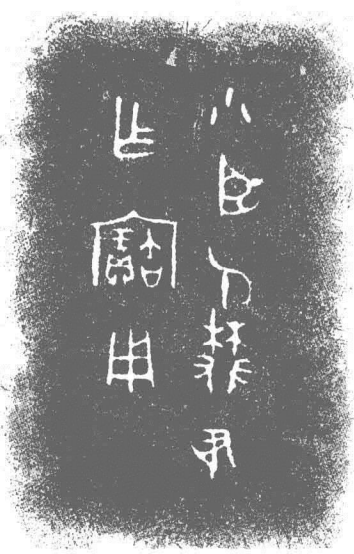 小臣氏樊尹
乍寶用